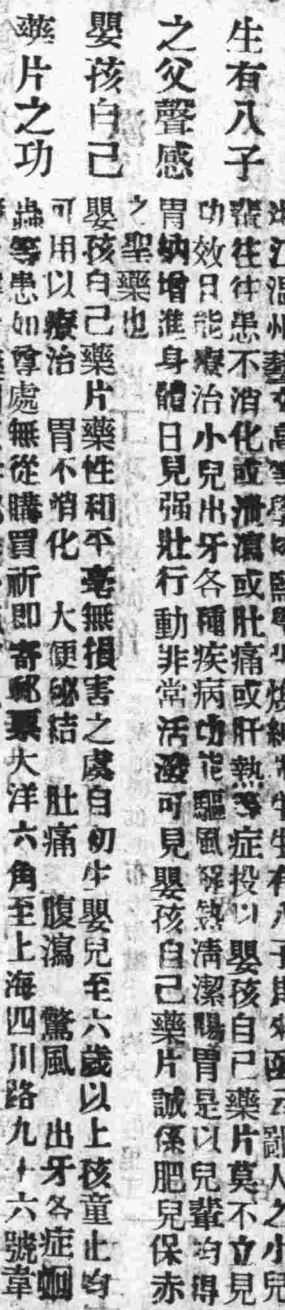 生有八子
之父聲感
嬰孩自己
藥片之功
江温州藝文高等學 監學 生生有八子其來函云鄙人之小兒
輩往往患不消化或泄瀉或肚痛或肝熱等症投以嬰孩自己藥片莫不立見
功效且能療治小兒出牙各種疾病功能驅風解熱清潔腸胃是以兒輩均得
胃納增進身體日見强壯行動非常活潑可見嬰孩自己藥片誠係肥兒保赤
之聖藥也
嬰孩自己藥片藥性和平毫無損害之處自初生嬰兒至六歲以上孩童止均
可用以療治 胃不消化 大便秘結 肚痛 腹瀉 驚風 出牙各症
蟲等患如尊處無從購買祈即寄郵票大洋六角至上海四川路九十六號韋